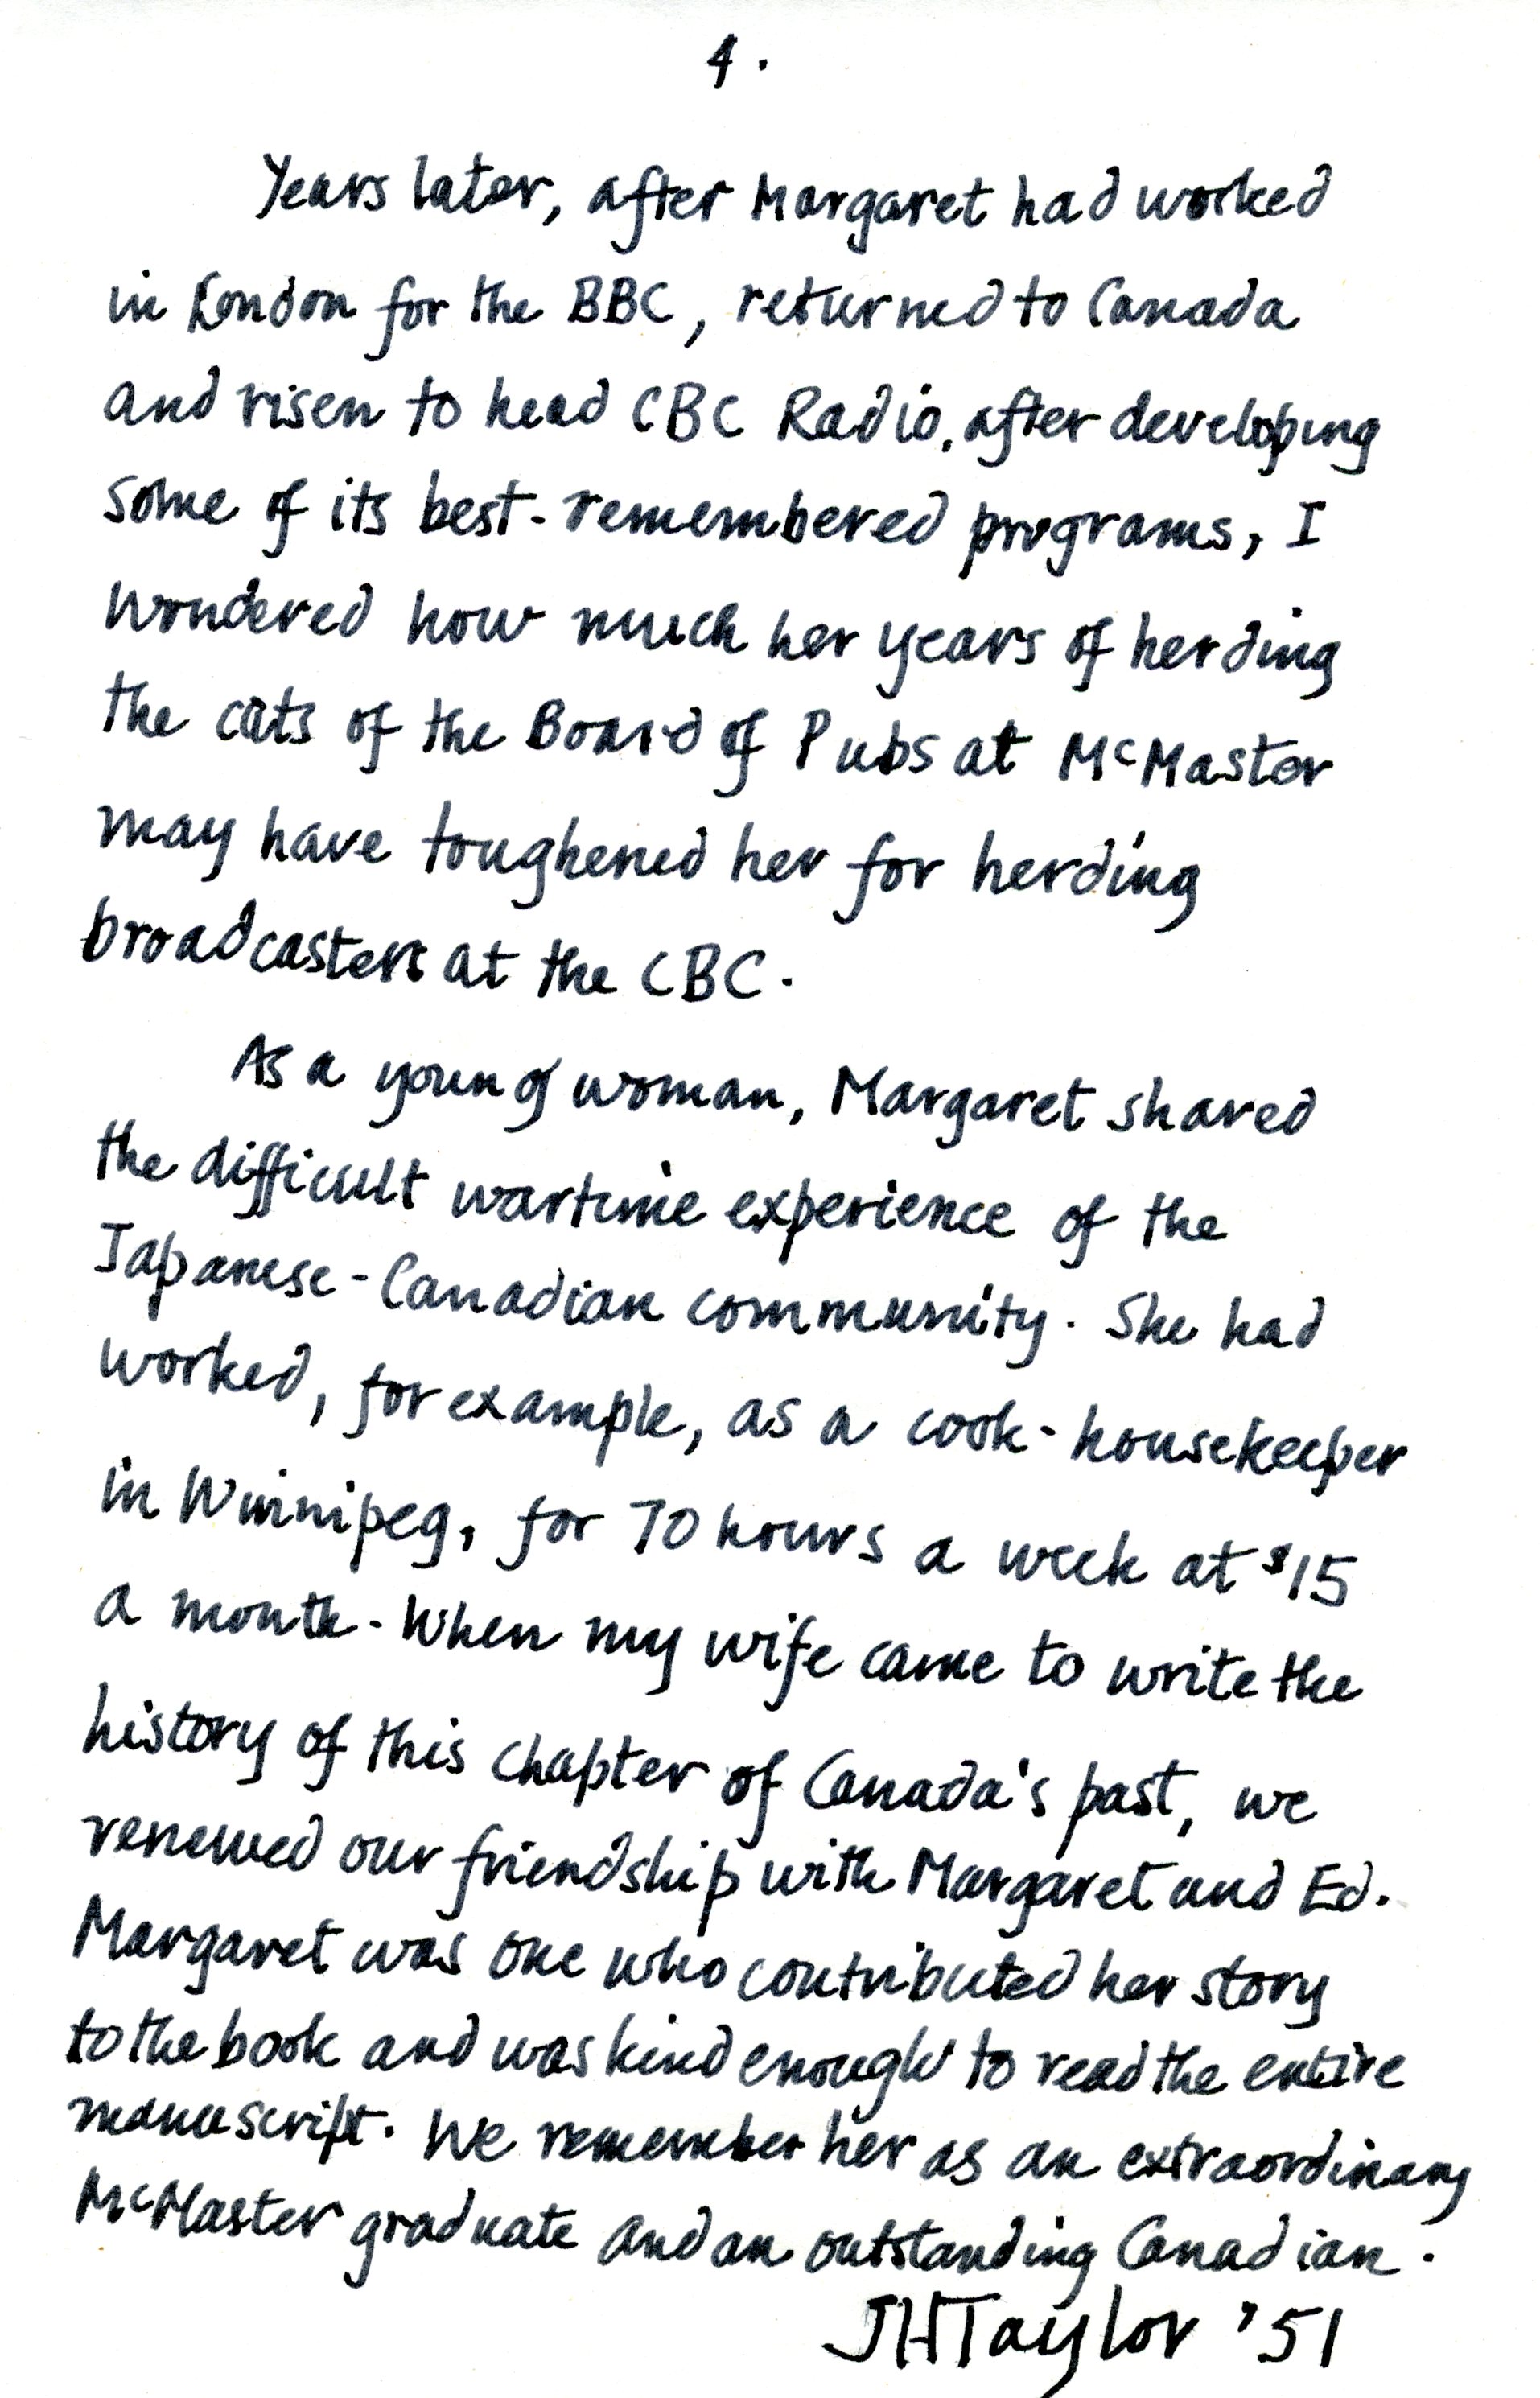 4.
Years later, after Margaret had worked
in London for the BBC, returned to Canada
and risen to head CBC Radio, after developing
some of its best-remembered programs, I
wondered how much her years of herding
the cats of the Board of Pubs at McMaster
may have toughened her for herding
broadcasters at the CBC.
As a young woman, Margaret shared
the difficult wartime experience of the
Japanese-Canadian community. She had
worked, for example, as a cook-housekeeper
in Winnipeg, for 70 hours a week at $15
a month. When my wife came to write the
history of this chapter of Canada's past, we
renewed our friendship with Margaret and Ed.
Margaret was one who contributed her story
to the book and was kind enough to read the entire
manuscript. We remember her as an extraordinary
McMaster graduate and an outstanding Canadian.
JHTaylor '51